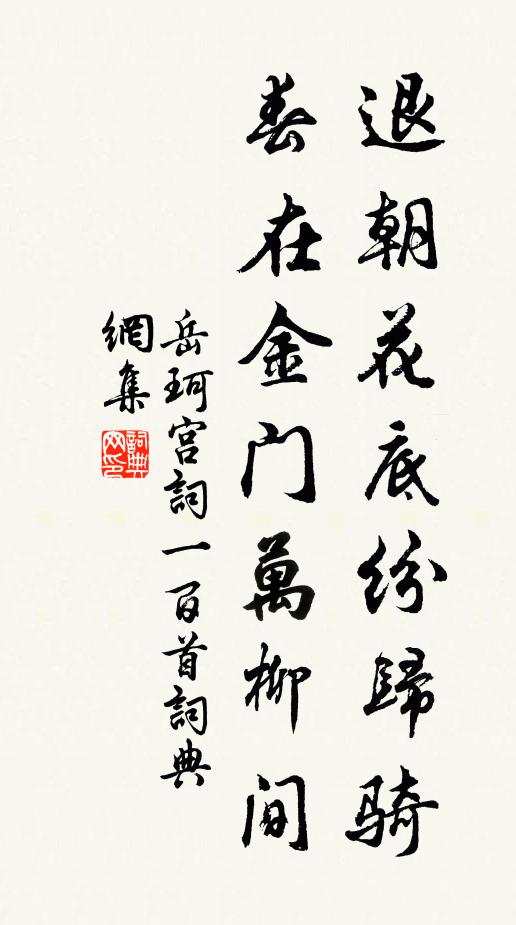 退朝花底纷歸骑
春在金门萬柳间
岳珂宫詞一百首詞典
網集
詞典网印